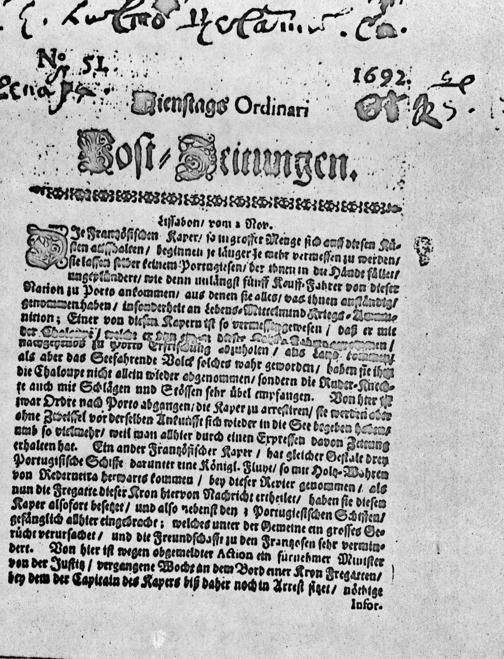 No 51.
1692.
Dienstags Ordinari
Post-Zeitungen.
Lissabon/ vom 2 Nov.
Die Französischen Kaper/ so in grosser Menge sich auff diesen Kü-
sten auffhalten/ beginnen je länger je mehr vermessen zu werden/
sie lassen schier keinem Portugiesen/ der ihnen in die Hände fället/
ungeplündert/ wie denn unlängst fünff Kauff-Fahrer von dieser
Nation zu Porto ankommen/ aus denen sie alles/ was ihnen anständig/
genommen haben/ insonderheit an Lebens-Mittel und Kriegs-Ammu-
nition; Einer von diesen Kapern ist so vermessen gewesen/ daß er mit
der Chaloupe/ welche er von
nachgehends zu Porto Erfrischung abzuholen/ ans Land kommen/
als aber das Seefahrende Volck solches wahr geworden/ haben sie ihm
die Chaloupe nicht allein wieder abgenommen/ sondern die Ruder-Knech-
te auch mit Schlägen und Stössen sehr übel empfangen. Von hier ist
zwar Ordre nach Porto abgangen/ die Kaper zu arrestiren/ sie werden aber
ohne Zweiffel vor derselben Ankunfft sich wieder in die See begeben haben/
umb so vielmehr/ weil man allhier durch einen Expressen davon Zeitung
erhalten hat. Ein ander Französischer Kaper/ hat gleicher Gestalt drey
Portugisische Schiffe darunter eine Königl. Fluyt/ so mit Holtz-Wahren
von Rederneira herwarts kommen/ bey dieser Revier genommen/ als
nun die Fregatte dieser Kron hiervon Nachricht ertheilet/ haben sie diesen
Kaper alsofort besetzet/ und also nebenst den 3 Portugiesischen Schiffen/
gefänglich allhier eingebracht; welches unter der Gemeine ein grosses Ge-
rücht verursachet/ und die Freundschafft zu den Franzosen sehr vermin-
dert. Von hier ist wegen abgemeldter Action ein fürnehmer Minister
von der Justitz/ vergangene Woche an dem Bord einer Kron Fregatten/
bey dem der Capitain des Kapers biß daher noch in Arrest sitzet/ nöthige
Infor-